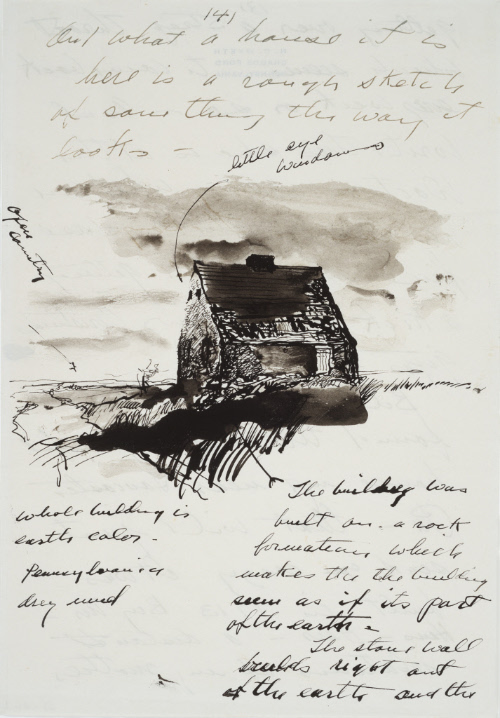 141
And what a house it is
here is a rough sketch
of some thing the way it
looks –
little eye
windows
open
country
whole building is
earth color –
Pennsylvania
drey mud
The building was
built on a rock
formation which
makes the the building
seem as if its part
of the earth –
The stone wall
builds right out
of the earth and the